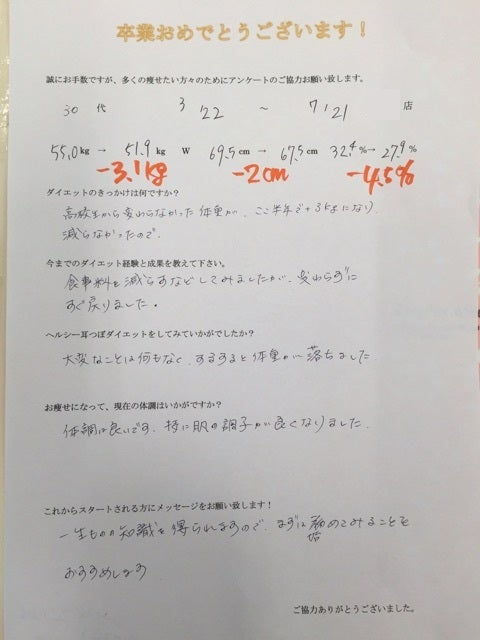 卒業おめでとうございます！
誠にお手数ですが、多くの痩せたい方々のためにアンケートのご協力お願い致します。
30 代 3/22 ～ 7/21 店
55.0kg → 51.9kg W 69.5cm → 67.5cm 32.4%→ 27.9%
-3.1kg -2cm -4.5%
ダイエットのきっかけは何ですか？
高校生から変わらなかった体重が、ここ半年で+3kgになり
減らなかったので。
今までのダイエット経験と成果を教えて下さい。
食事料を減らすなどしてみましたが、変わらずに
すぐ戻りました。
ヘルシー耳つぼダイエットをしてみていかがでしたか？
大変なことは何もなく、するすると体重が落ちました
お痩せになって、現在の体調はいかがですか？
体調は良いです。特に肌の調子が良くなりました。
これからスタートされる方にメッセージをお願い致します！
一生ものの知識を得られますので、まずは始めてみることを
おすすめします
ご協力ありがとうございました。